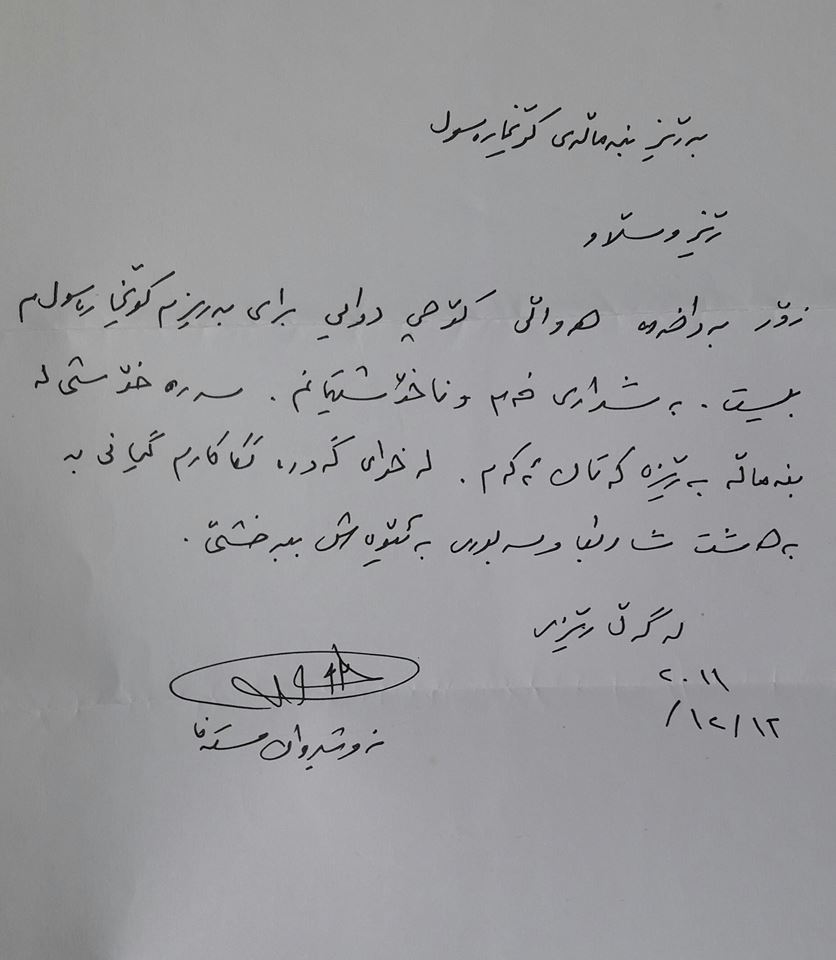 بەڕێز بنەماڵەی کوێخا ڕەسول
ڕێز و سڵاو
زۆر بەداخەوە هەواڵی کۆچی دوایی برای بەڕێزم کوێخا ڕەسولم
بیست. بەشداری خەم و ناخۆشیتانم. سەرەخۆشی لە
بنەماڵە بەڕێزەکەتان ئەکەم. لە خوای گەورە تکاکارم گیانی بە
بەهەشت شاد بکا و سەبوری بە ئێوەش ببەخشێ.
لەگەڵ ڕێزی
٢٠١١
١٢/١٢/
نەوشیروان مستەفا